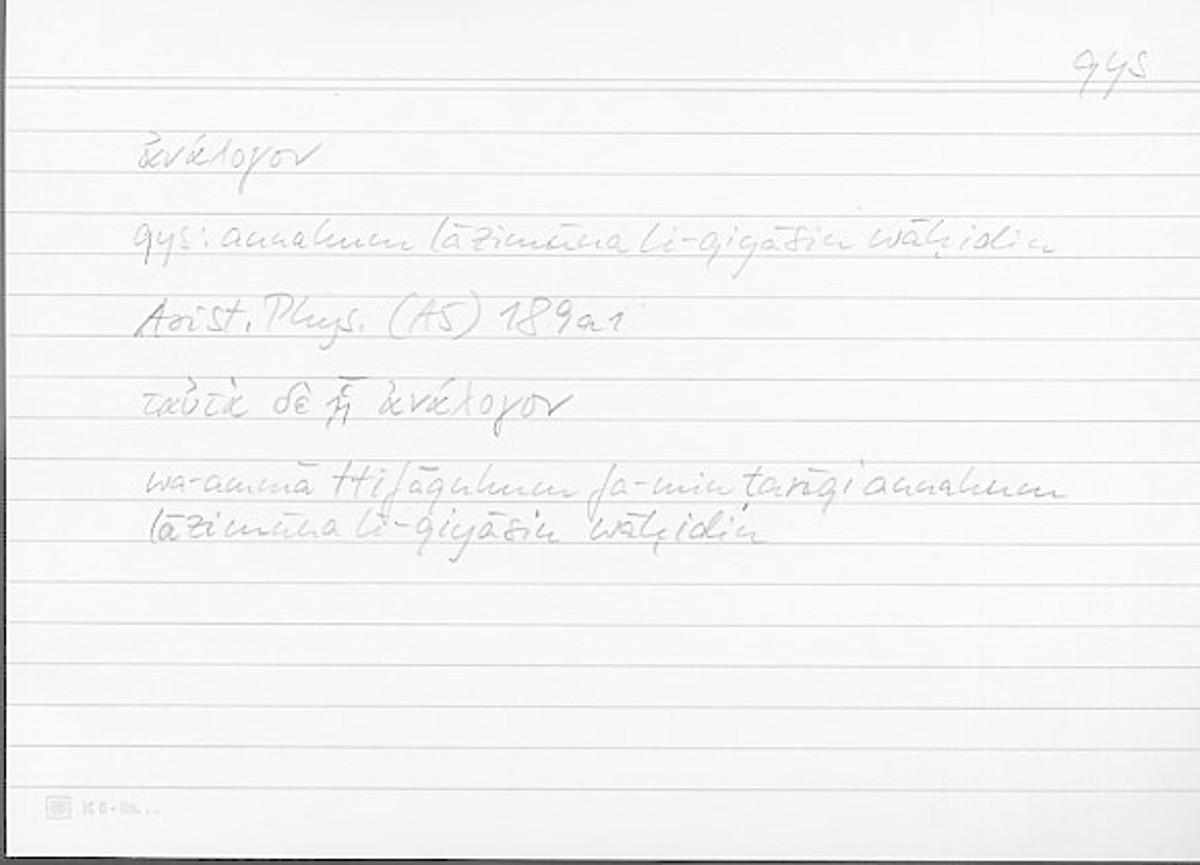 qys
ἀνάλογον
qys: annahum lāzimūna li-qiyāsin wāḥidin
Arist. Phys. (A5) 189a1
ταὐτὰ δὲ ᾗ ἀνάλογον
wa-ammā ttifāquhum fa-min ṭarīqi annahum
lāzimūna li-qiyāsin wāḥidin